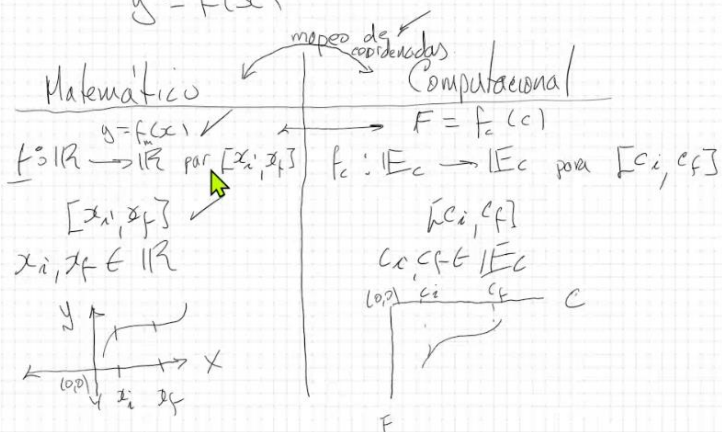 y = f(x)
mapeo de coordenadas
Matemático
Computacional
y = fm(x)
F = fc (c)
f: IR → IR par [xi, xf]
fc : IEc → IEc para [ci, cf]
[xi, xf]
[ci, cf]
xi, xf ∈ IR
ci, cf ∈ IEc
y
(0,0)
ci
cf
C
X
(0,0)
xi
xf
F